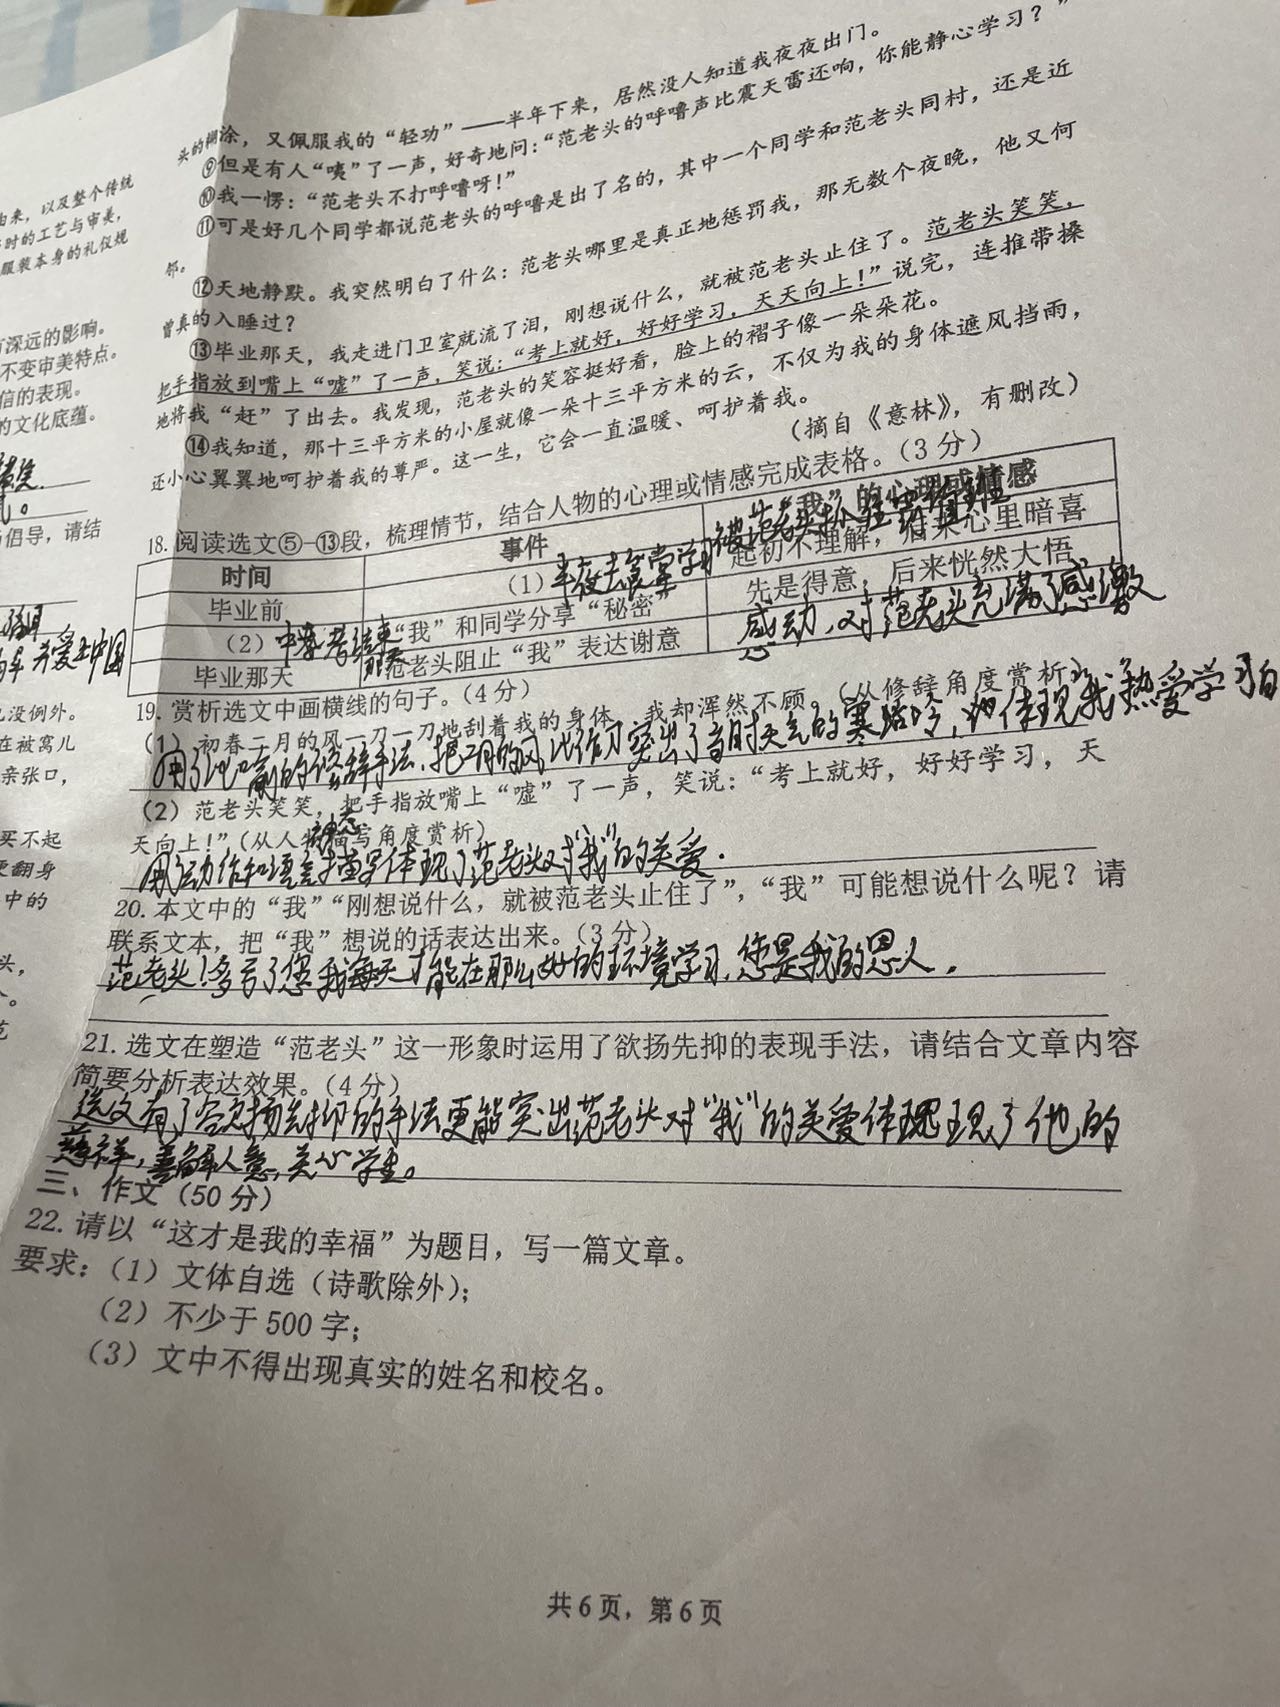 头的糊涂，又佩服我的“轻功”——半年下来，居然没人知道我夜夜出门。
⑨但是有人“咦”了一声，好奇地问：“范老头的呼噜声比震天雷还响，你能静心学习？”
⑩我一愣：“范老头不打呼噜呀！”
⑪可是好几个同学都说范老头的呼噜是出了名的，其中一个同学和范老头同村，还是近
邻。
⑫天地静默。我突然明白了什么：范老头哪里是真正地惩罚我，那无数个夜晚，他又何
曾真的入睡过？
⑬毕业那天，我走进门卫室就流了泪，刚想说什么，就被范老头止住了。范老头笑笑，
把手指放到嘴上“嘘”了一声，笑说：“考上就好，好好学习，天天向上！”说完，连推带搡
地将我“赶”了出去。我发现，范老头的笑容挺好看，脸上的褶子像一朵朵花。
⑭我知道，那十三平方米的小屋就像一朵十三平方米的云，不仅为我的身体遮风挡雨，
还小心翼翼地呵护着我的尊严。这一生，它会一直温暖、呵护着我。
（摘自《意林》，有删改）
18. 阅读选文⑤-⑬段，梳理情节，结合人物的心理或情感完成表格。（3分）
时间 事件 “我”的心理或情感
毕业前 （1）半夜去食堂学习被范老头抓住 起初不理解，后来心里暗喜
（2）中考结束 “我”和同学分享“秘密” 先是得意，后来恍然大悟
毕业那天 范老头阻止“我”表达谢意 感动，对范老头充满了感激
19. 赏析选文中画横线的句子。（4分）
（1）初春二月的风一刀一刀地刮着我的身体，我却浑然不顾。（从修辞角度赏析）
用了比喻的修辞手法，把二月的风比作刀突出了当时天气的寒冷，也体现我热爱学习
（2）范老头笑笑，把手指放嘴上“嘘”了一声，笑说：“考上就好，好好学习，天
天向上！”（从人物描写角度赏析）
用动作和语言描写体现了范老头对“我”的关爱.
20. 本文中的“我”“刚想说什么，就被范老头止住了”，“我”可能想说什么呢？请
联系文本，把“我”想说的话表达出来。（3分）
范老头！多亏了您我每天才能在那么好的环境学习，您是我的恩人.
21. 选文在塑造“范老头”这一形象时运用了欲扬先抑的表现手法，请结合文章内容
简要分析表达效果。（4分）
选文有了欲扬先抑的手法更能突出范老头对“我”的关爱体现了他的
慈祥，善解人意，关心学生。
三、作文（50分）
22. 请以“这才是我的幸福”为题目，写一篇文章。
要求：（1）文体自选（诗歌除外）；
（2）不少于500字；
（3）文中不得出现真实的姓名和校名。
共6页，第6页
由来，以及整个传统
时的工艺与审美，
服装本身的礼仪规
深远的影响。
不变审美特点。
信的表现。
的文化底蕴。
倡导，请结
关爱
中国
没例外。
在被窝儿
亲张口，
买不起
便翻身
中的
头，